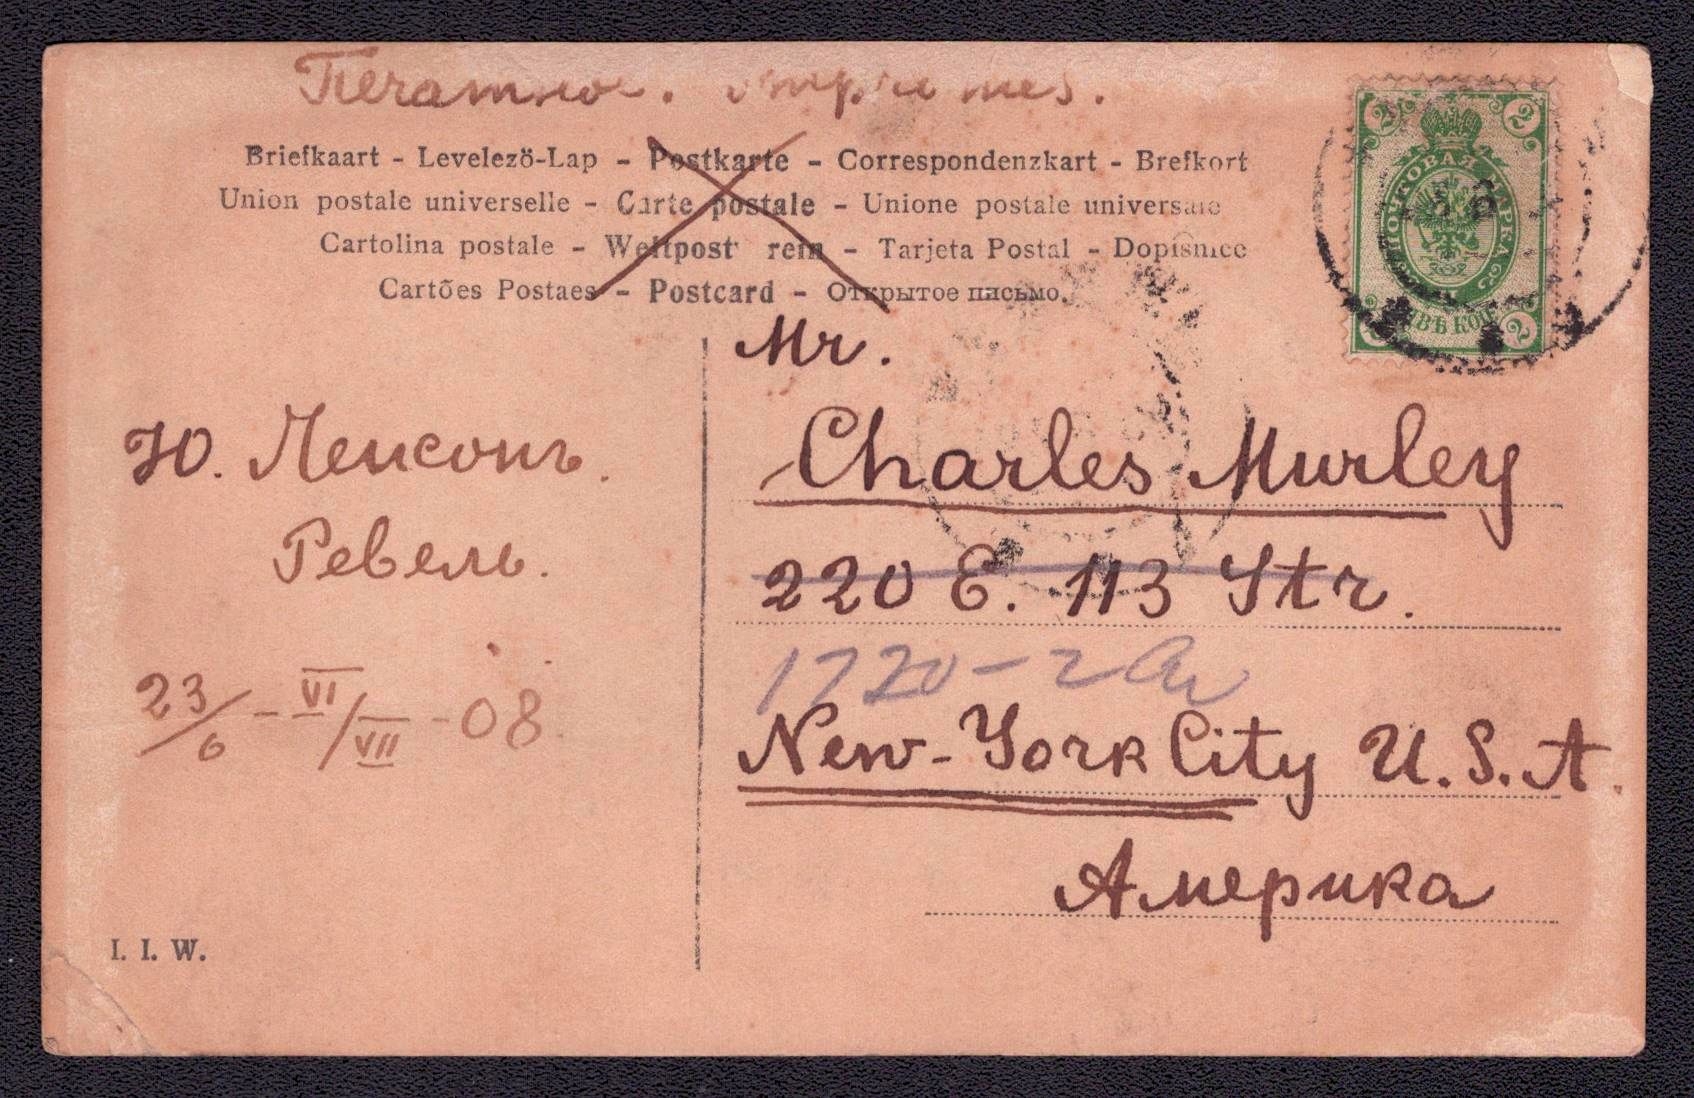 Печатное. Imprimés.
Briefkaart - Levelezö-Lap - Postkarte - Correspondenzkart - Brefkort
Union postale universelle - Carte postale - Unione postale universale
Cartolina postale - Weltpostverein - Tarjeta Postal - Dopisnice
Cartões Postaes - Postcard - Открытое письмо.
2 2
ПОЧТОВАЯ МАРКА
ДВѢ КОП.
2
Mr.
Charles Murley
220 E. 113 Str.
1720-2 Av
New-York City U.S.A.
Америка
Ю.
Ревель.
23/6 - VI/VII - 08.
I. I. W.